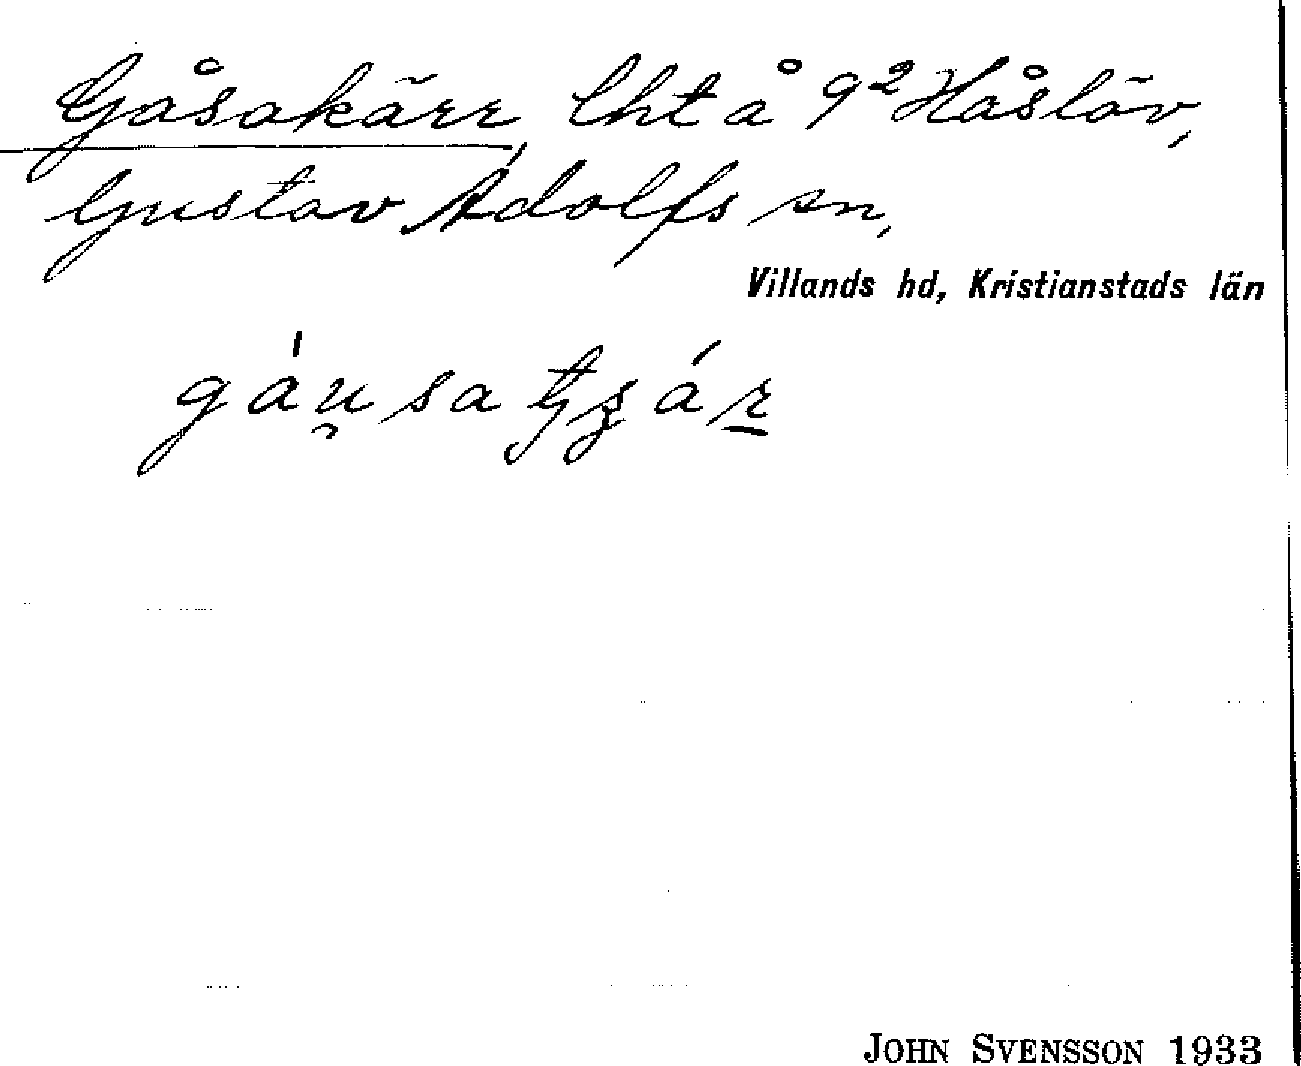 Gåsakärr, lht å 9² Håslöv,
Gustav Adolfs sn,
Villands hd, Kristianstads län
gáu̯sa
JOHN SVENSSON 1933